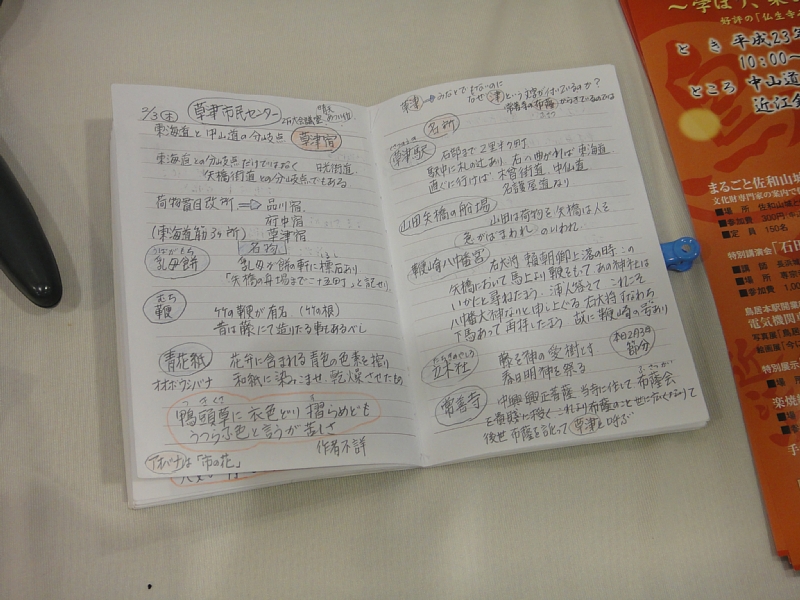 2/3(木) 草津市民センター
2F大会議室
東海道と中山道の分岐点 草津宿
東海道との分岐点だけではなく
矢橋街道との分岐点でもある
荷物貫目改所 ⇒ 品川宿
府中宿
(東海道筋3ヶ所) 草津宿
名物
うばがもち
乳母餅 乳母が餅の軒に標石あり
「矢橋の舟場まで二十五町」と記せり
むち
鞭 竹の鞭が有名 (竹の根)
昔は藤にて造りたる鞭もあるべし
青花紙 花弁に含まれる青色の色素を摺り
オオボウシバナ 和紙に染みこませ、乾燥させたもの
つきくさ
鴨頭草に衣色どり摺らめども
うつろふ色と言うが苦しさ
作者不詳
アオバナは「市の花」
草津→みなとでもないのに
なぜ津という文字が付いているのか?
常善寺の布薩からきているのでは
名所
草津駅 石部まで2里半7町
駅中に札の辻あり 右へ曲がれば東海道
直ぐに行けば、木曽街道、中仙道
名護屋道なり
山田矢橋の船場 山田は荷物を矢橋は人を
「急がばまわれ」のいわれ
鞭崎八幡宮 右大将 頼朝卿上洛の時 この
矢橋において馬上より鞭をもて あの神社は
いかだと尋ねたもう 浦人答えて これこそ
八幡大神なりと申し上ぐる 右大将すなわち
下馬あって再拝したもう 故に鞭崎の号あり
たちきのやしろ
立木社 藤を神の愛樹とす
春日明神を祭る
本日2月3日
節分
ふさつがい
常善寺 中興 興正菩薩 当寺に住して布薩会
後世布薩を訛って草津と呼ぶ
～学ぼう、
好評の「仏生寺
とき 平成23年
10:00～
ところ 中山道
近江
まるごと佐和山城
文化財専門家の案内で
■場 所 佐和山城
■参加費 300円
■定 員 150名
特別講演会「石田
■講 師
■場 所
■参加費
鳥居本駅開業
電気機関
写真展
絵画展
特別展示
楽焼
■場
■参
手